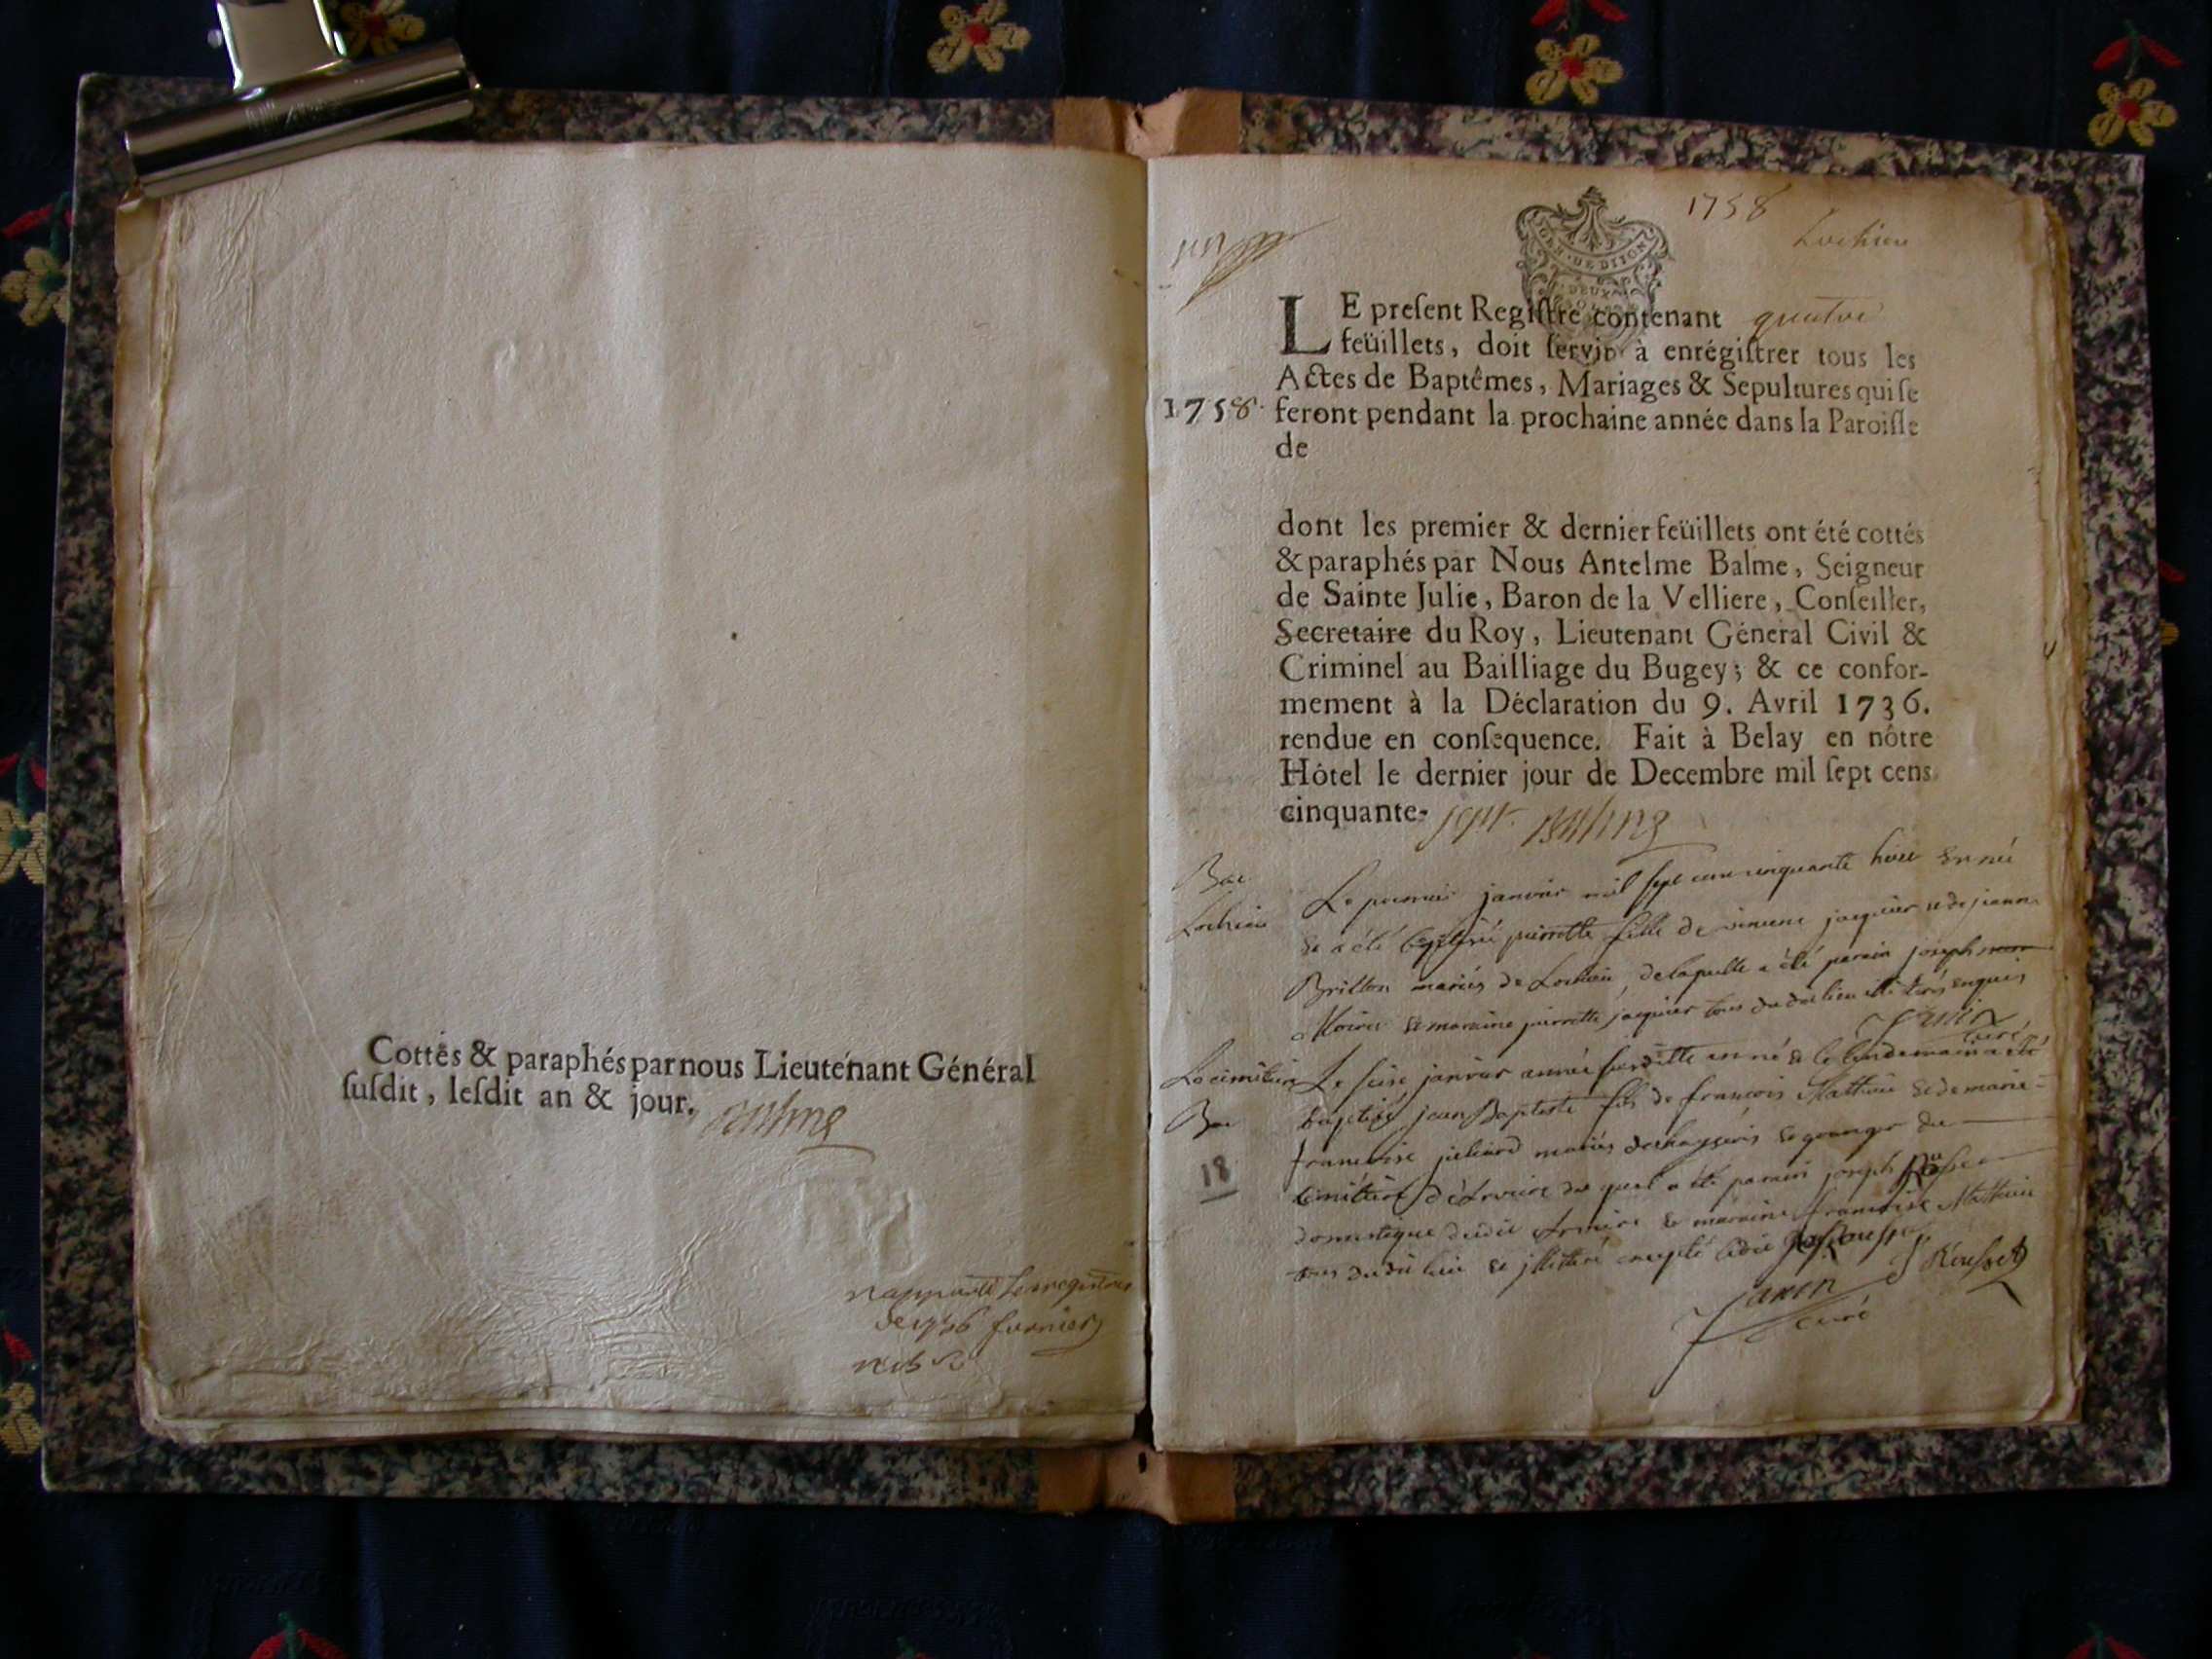 Cottés & paraphés par nous Lieutenant Général
ſuſdit, leſdit an & jour. Balme
de 1756 furnier
1758
Lochieu
GEN. DE DIJON
DEUX
LE preſent Regiſtre contenant quatre
feüillets, doit ſervir à enrégiſtrer tous les
Actes de Baptêmes, Mariages & Sepultures qui ſe
1758. feront pendant la prochaine année dans la Paroiſſe
de
dont les premier & dernier feüillets ont été cottés
& paraphés par Nous Antelme Balme, Seigneur
de Sainte Julie, Baron de la Velliere, Conſeiller,
Secretaire du Roy, Lieutenant Géneral Civil &
Criminel au Bailliage du Bugey; & ce confor-
mement à la Déclaration du 9. Avril 1736.
rendue en conſequence. Fait à Belay en nôtre
Hôtel le dernier jour de Decembre mil ſept cens
cinquante-sept Balme
Bae
Lochieu
Le premier janvier mil sept cent cinquante huit est née
et a été baptisée pierrette fille de vincent jacquier et de jeanne
Brillon mariés de Lochieu, de laquelle a été parain joseph
et maraine pierrette jacquier tous du dit lieu illiterés enquis
Janin
curé
Le seise janvier année susditte est né et le lendemain a été
Bae
baptisé jean Baptiste fils de francois Mathieu et de marie
francoise mariés et granger du
du quel a été parain joseph Rousset
domestique dudit et maraine francoise Mathieu
tous dudit lieu et illitteré excepté ledit Rousset
18
J Rousset
Janin
curé